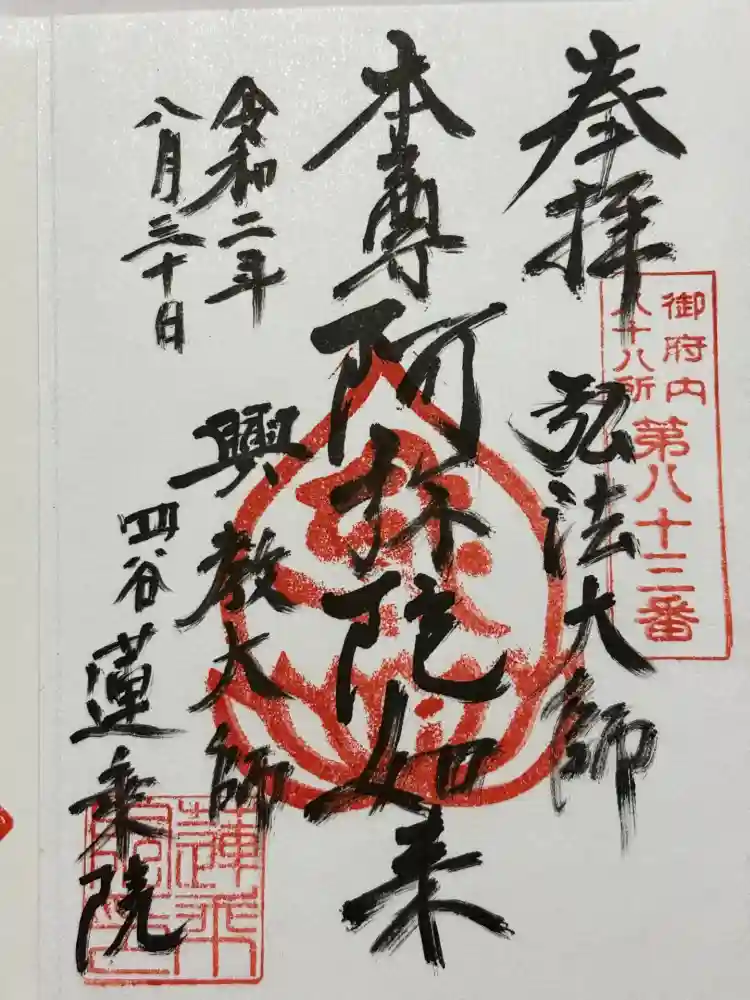 奉拝
弘法大師
御府内
八十八所
第八十三番
本尊
阿弥陀如来
興教大師
令和二年
八月三十日
四谷
蓮乗院